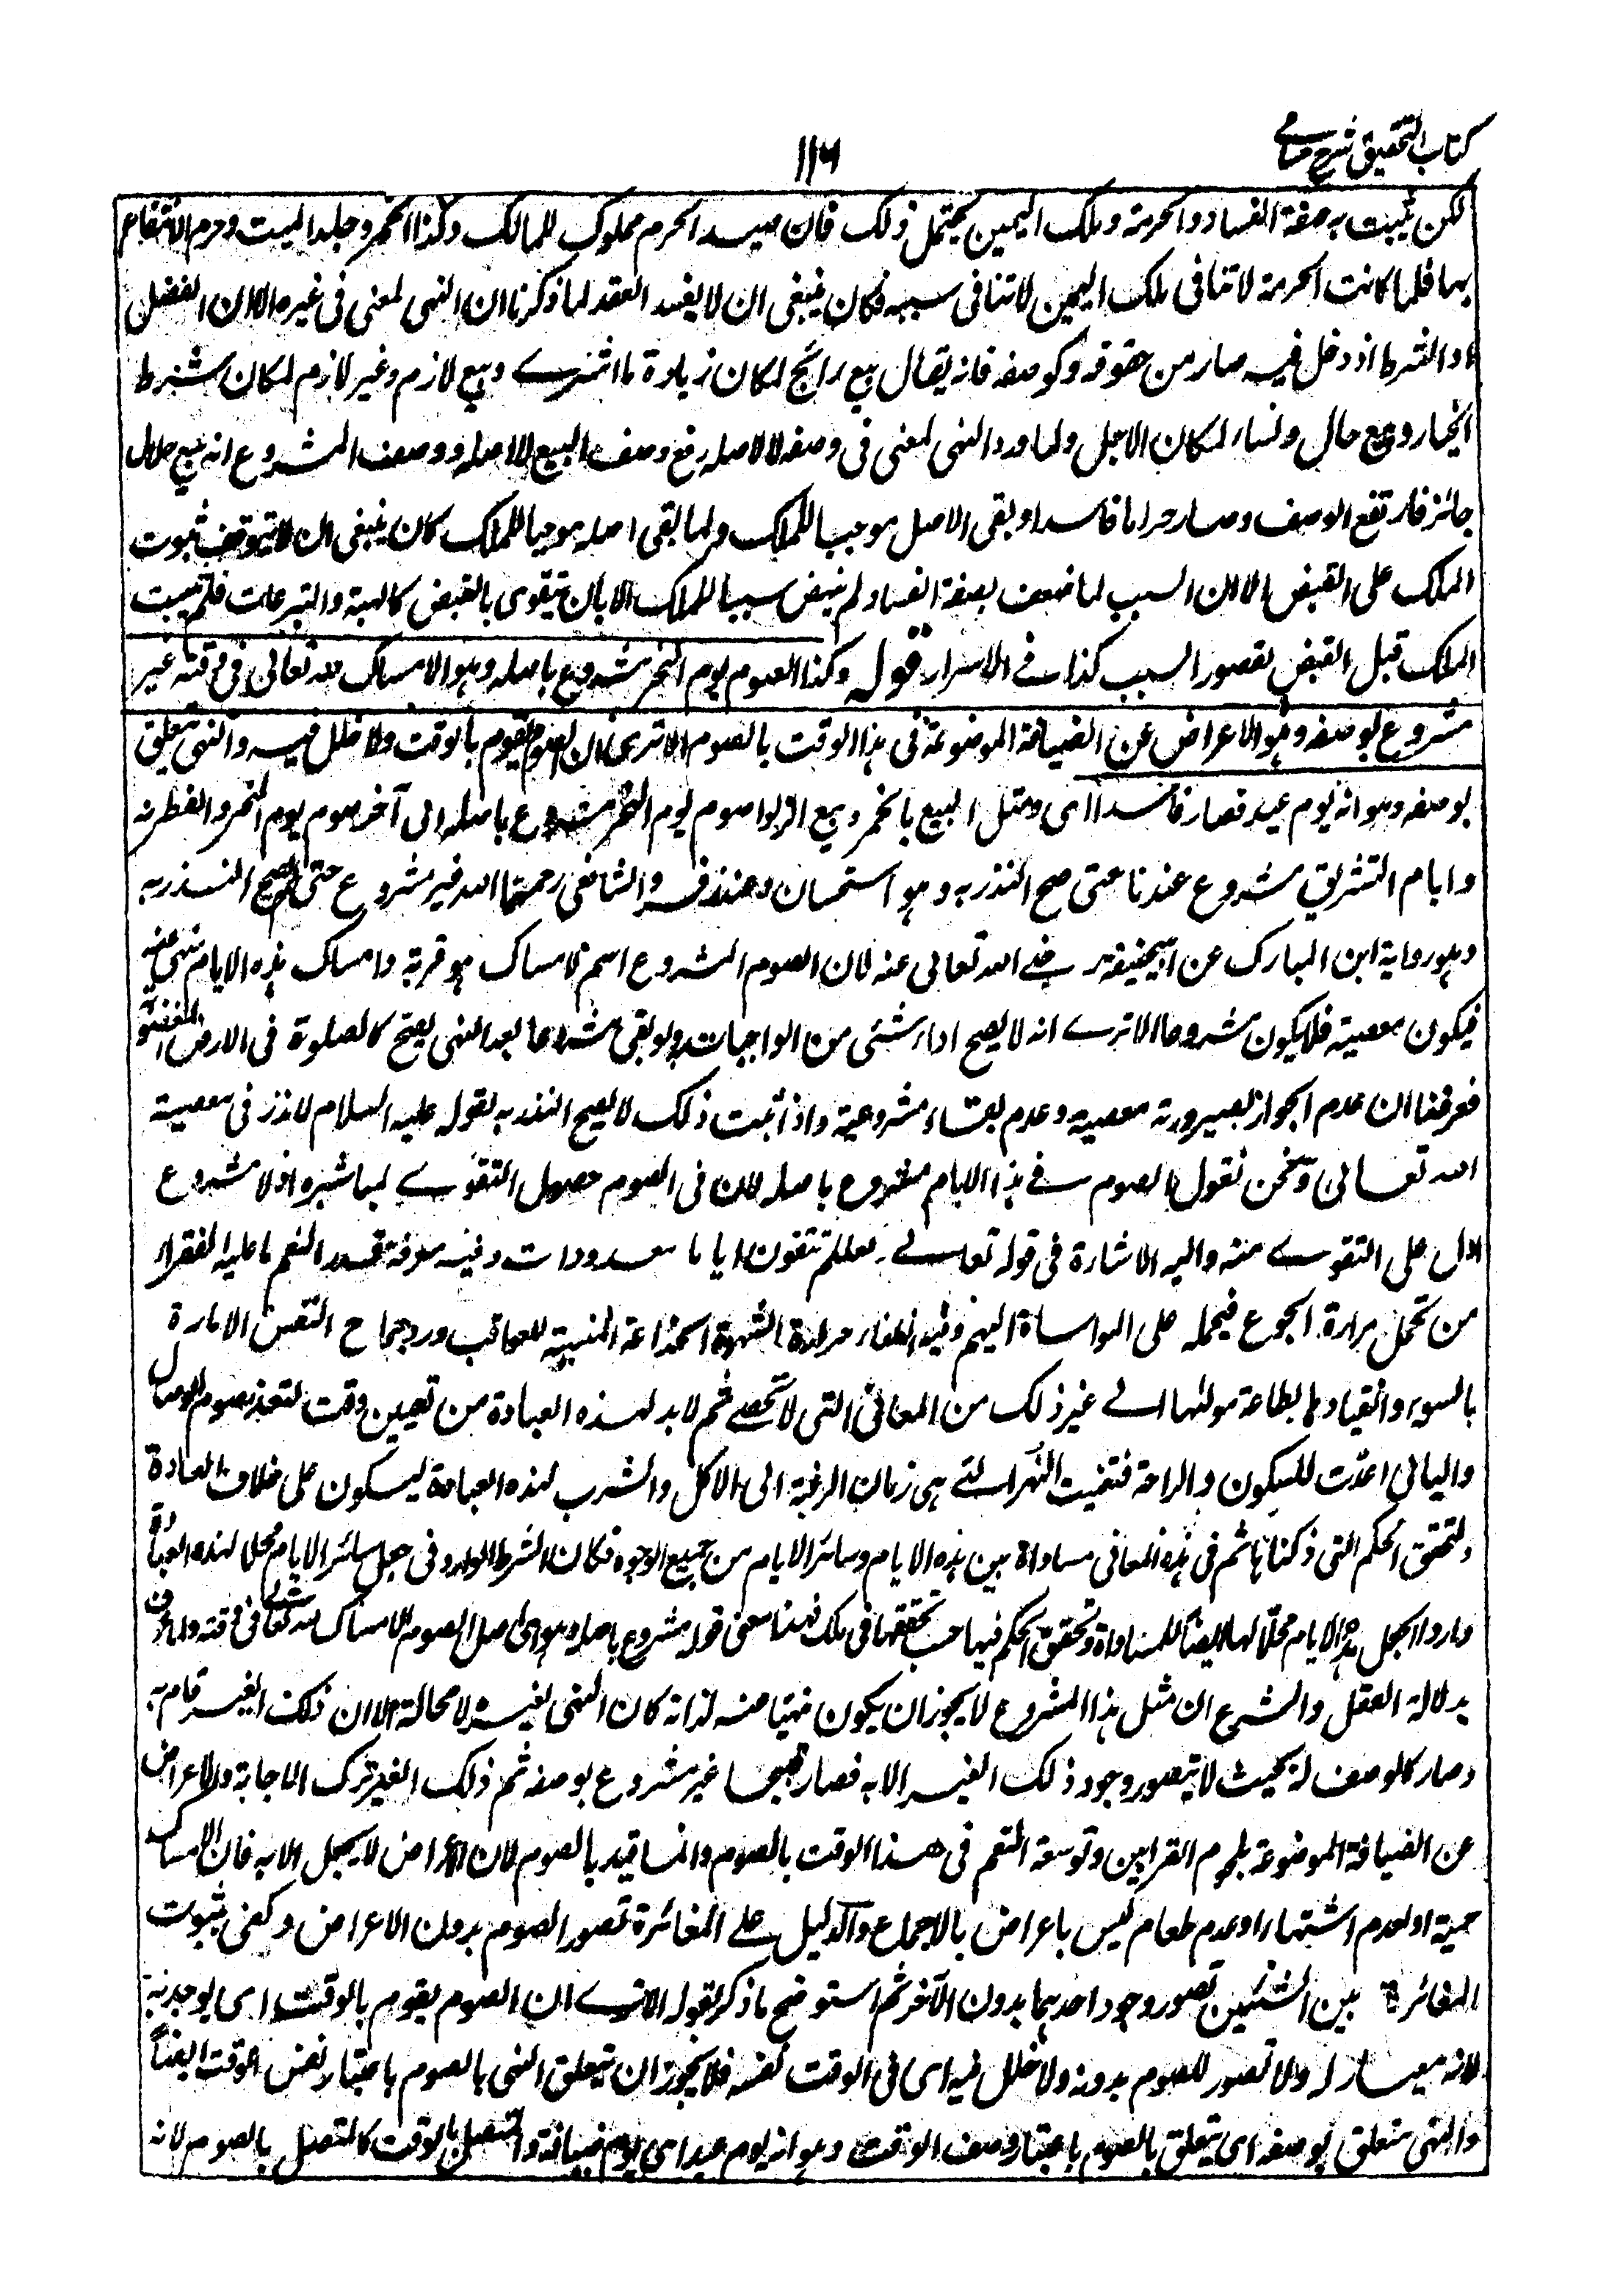 كتاب التحقيق شرح حسامى
١١٦
لكن يثبت به صفة الفساد والحرمة وملك اليمين يحتمل ذلك فان صيد الحرم مملوك للمالك وكذا الخمر وجلد الميت وحرم الانتفاع
بها فلما كانت الحرمة لا تنافى ملك اليمين لا تنافى سببه فكان ينبغى ان لا يفسد العقد لما ذكرنا ان النهى لمعنى فى غيره الا ان الفضل
او الشرط اذ دخل فيه صار من حقوقه وكوصفه فانه يقال بيع رابح لمكان زيادة ما اشترے وبيع لازم وغير لازم لمكان شرط
الخيار وبيع حال ونساء لمكان الاجل ولما ورد النهى لمعنى فى وصفه لا لاصله رفع وصف البيع لا اصله ووصف المشروع انه بيع حلال
جائز فارتفع الوصف وصار حراما فاسدا وبقى الاصل موجبا للملك ولما بقى اصله موجبا للملك كان ينبغى ان لا يتوقف ثبوت
الملك على القبض الا ان السبب لما ضعف بصفة الفساد لم ينهض سببا للملك الا بان يتقوى بالقبض كالهبة والتبرعات فلم يثبت
الملك قبل القبض لقصور السبب كذا فے الاسرار قوله وكذا الصوم يوم النحر مشروع باصله وهو الامساك لله تعالى فى وقته غير
مشروع بوصفه وهو الاعراض عن الضيافة الموضوعة فى هذا الوقت بالصوم الا ترى ان الصوم يقوم بالوقت ولا خلل فيه والنهى يتعلق
بوصفه وهو انه يوم عيد فصار فاسدا اى ومثل البيع بالخمر وبيع الربوا صوم يوم النحر مشروع باصله الى آخر صوم يوم النحر والفطر
وايام التشريق مشروع عندنا حتى صح النذر به وهو استحسان وعند زفر والشافعى رحمهما الله غير مشروع حتى لم يصح النذر به
وهو رواية ابن المبارك عن ابيحنيفة رضے الله تعالى عنه لان الصوم المشروع اسم لامساك هو قربة وامساك هذه الايام منهى عنه
فيكون معصية فلا يكون مشروعا الا ترے انه لا يصح اداء شئى من الواجبات ولو بقى مشروعا بعد النهى يصح كالصلوة فى الارض المغصوبة
فعرفنا ان عدم الجواز لصيرورته معصية وعدم بقاء مشروعيته واذا ثبت ذلك لا يصح النذر به لقوله عليه السلام لا نذر فى معصية
الله تعالى ونحن نقول الصوم فے هذا الايام مشروع باصله لان فى الصوم حصول التقوے لمباشره اذ لا مشروع
ادل على التقوے منه واليه الاشارة فى قوله تعالے لعلكم تتقون اياما معدودات وفيه معرفة قدر النعم ما عليه الفقراء
من تحمل مرارة الجوع فيحمله على المواساة اليهم وفيه اطفاء حرارة الشهوة الخداعة المنسية للعواقب ورد جماح النفس الامارة
بالسوء وانقيادها بطاعة مولٰها الے غير ذلك من المعانى التى لا تحصے ثم لا بد لهذه العبادة من تعيين وقت لتعذر صوم الوصال
والليالى اعدت للسكون والراحة فتعينت النهر التے هى زمان الرغبة الى الاكل والشرب لهذه العبادة ليكون على خلاف العادة
ولتحقق الحكم التى ذكرناها ثم فى هذه المعانى مساواة بين هذه الايام وسائر الايام من جميع الوجوه فكان الشرط الوارد فى جعل سائر الايام محلا لهذه العبادة
واردا لجعل هذه الايام محلا لها ايضا للمساواة وتحقق الحكم فيها حسب تحققها فى تلك فهذا معنى قوله مشروع باصله وهو اى اصل الصوم الامساك لله تعالى فى وقته ولما عرف
بدلالة العقل والشرع ان مثل هذا المشروع لا يجوز ان يكون منهيا عنه لذاته كان النهى لغيره لا محالة الا ان ذلك الغير قام به
وصار كالوصف له بحيث لا يتصور وجود ذلك الغير الا به فصار قبيحا غير مشروع بوصفه ثم ذلك الغير ترك الاجابة والاعراض
عن الضيافة الموضوعة بلحوم القرابين وتوسعة النعم فى هذا الوقت بالصوم وانما قيد بالصوم لان الاعراض لا يحصل الا به فان الامساك
حمية او لعدم اشتهاء او عدم طعام ليس باعراض بالاجماع والدليل علے المغائرة تصور الصوم بدون الاعراض وكفى بثبوت
المغائرة بين الشئين تصور وجود احدهما بدون الآخر ثم استوضح ما ذكر بقوله الا ترے ان الصوم يقوم بالوقت اى يوجد به
لانه معيار له ولا تصور للصوم بدونه ولا خلل فيه اى فى الوقت نفسه فلا يجوز ان يتعلق النهى بالصوم باعتبار نفس الوقت ايضاً
والنهى متعلق بوصفه اى يتعلق بالصوم باعتبار وصف الوقت وهو انه يوم عيد اى يوم ضيافة والمتصل بالوقت كالمتصل بالصوم لانه